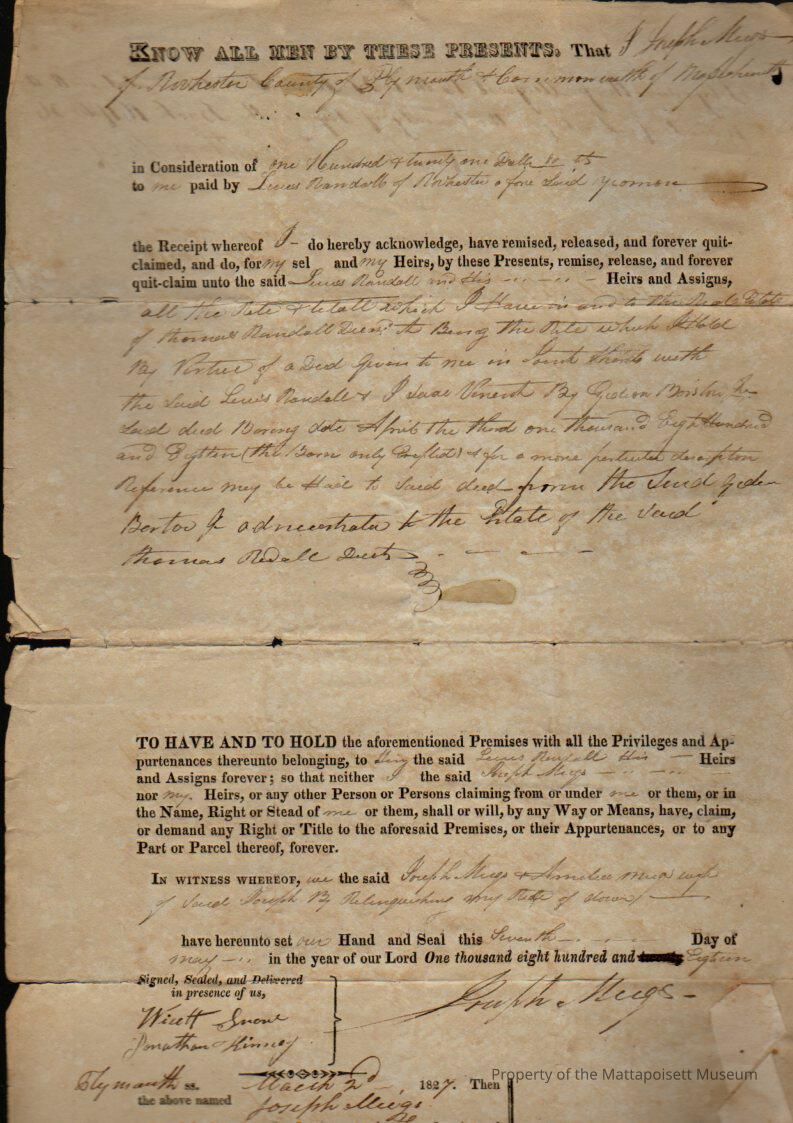 KNOW ALL MEN BY THESE PRESENTS, That I Joseph Meigs
of Rochester County of Plymouth & Commonwealth of
in Consideration of one Hundred & twenty one Dolls
to me paid by Lewis Randall of Rochester afore Said yeoman
the Receipt whereof I do hereby acknowledge, have remised, released, and forever quit-
claimed, and do, for my sel and my Heirs, by these Presents, remise, release, and forever
quit-claim unto the said Lewis Randall and His Heirs and Assigns,
all the Rite & which I Have in and to the Real Estate
of thomas Randall it Being the Rite which I Hold
By Virtue of a Deed Given to me in with
the Said Lewis Randall & Isaac Vincent By Gideon
Said deed Baring date April the third one thousand Eight Hundred
and Egtten (the Barn only Excepted) & for a more
Reference may be Had to Said deed from the Said
to the Estate of the Said
thomas
TO HAVE AND TO HOLD the aforementioned Premises with all the Privileges and Ap-
purtenances thereunto belonging, to him the said Lewis Randall His Heirs
and Assigns forever; so that neither I the said Joseph Meigs
nor my Heirs, or any other Person or Persons claiming from or under me or them, or in
the Name, Right or Stead of me or them, shall or will, by any Way or Means, have, claim,
or demand any Right or Title to the aforesaid Premises, or their Appurtenances, or to any
Part or Parcel thereof, forever.
IN WITNESS WHEREOF, we the said Joseph Meigs & wife
of Said Joseph By Relinquishing my Rite of
have hereunto set our Hand and Seal this Seventh Day of
may in the year of our Lord One thousand eight hundred and
Signed, Sealed, and Delivered
in presence of us,
Joseph Meigs
Snow
Jonathan Kinney
Plymouth ss. March 2d, 1827. Then
the above named Joseph Meigs
Property of the Mattapoisett Museum